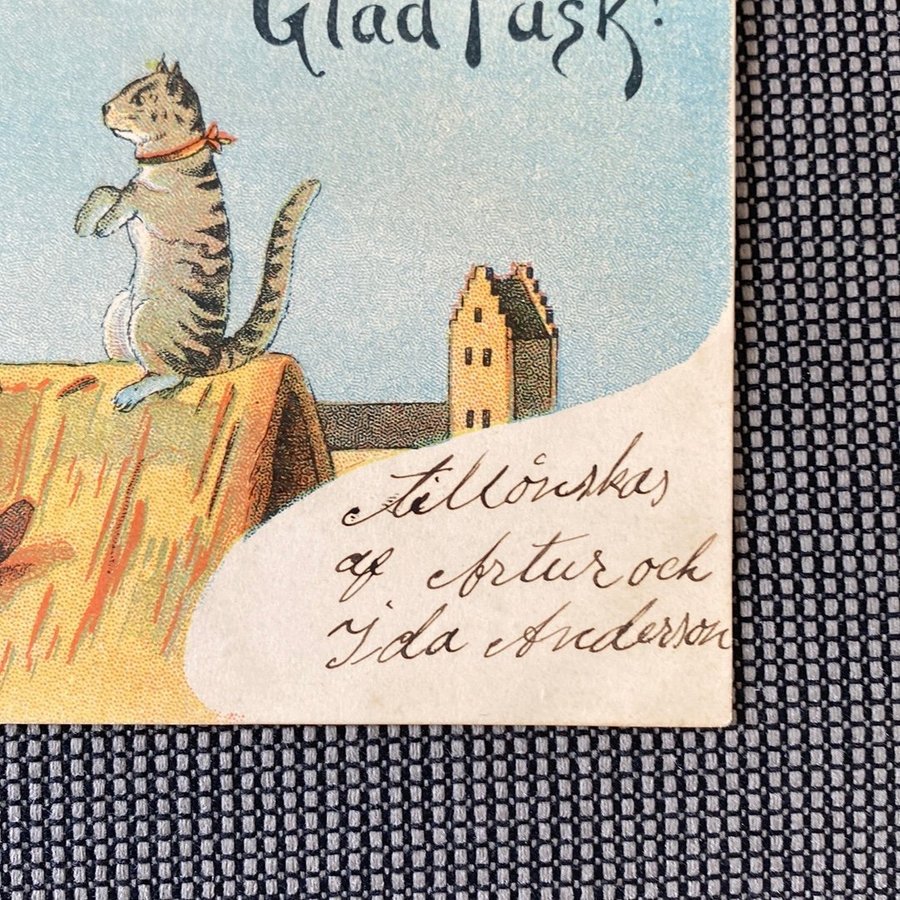 Glad Påsk!
tillönskas
af Artur och
Ida Anderson